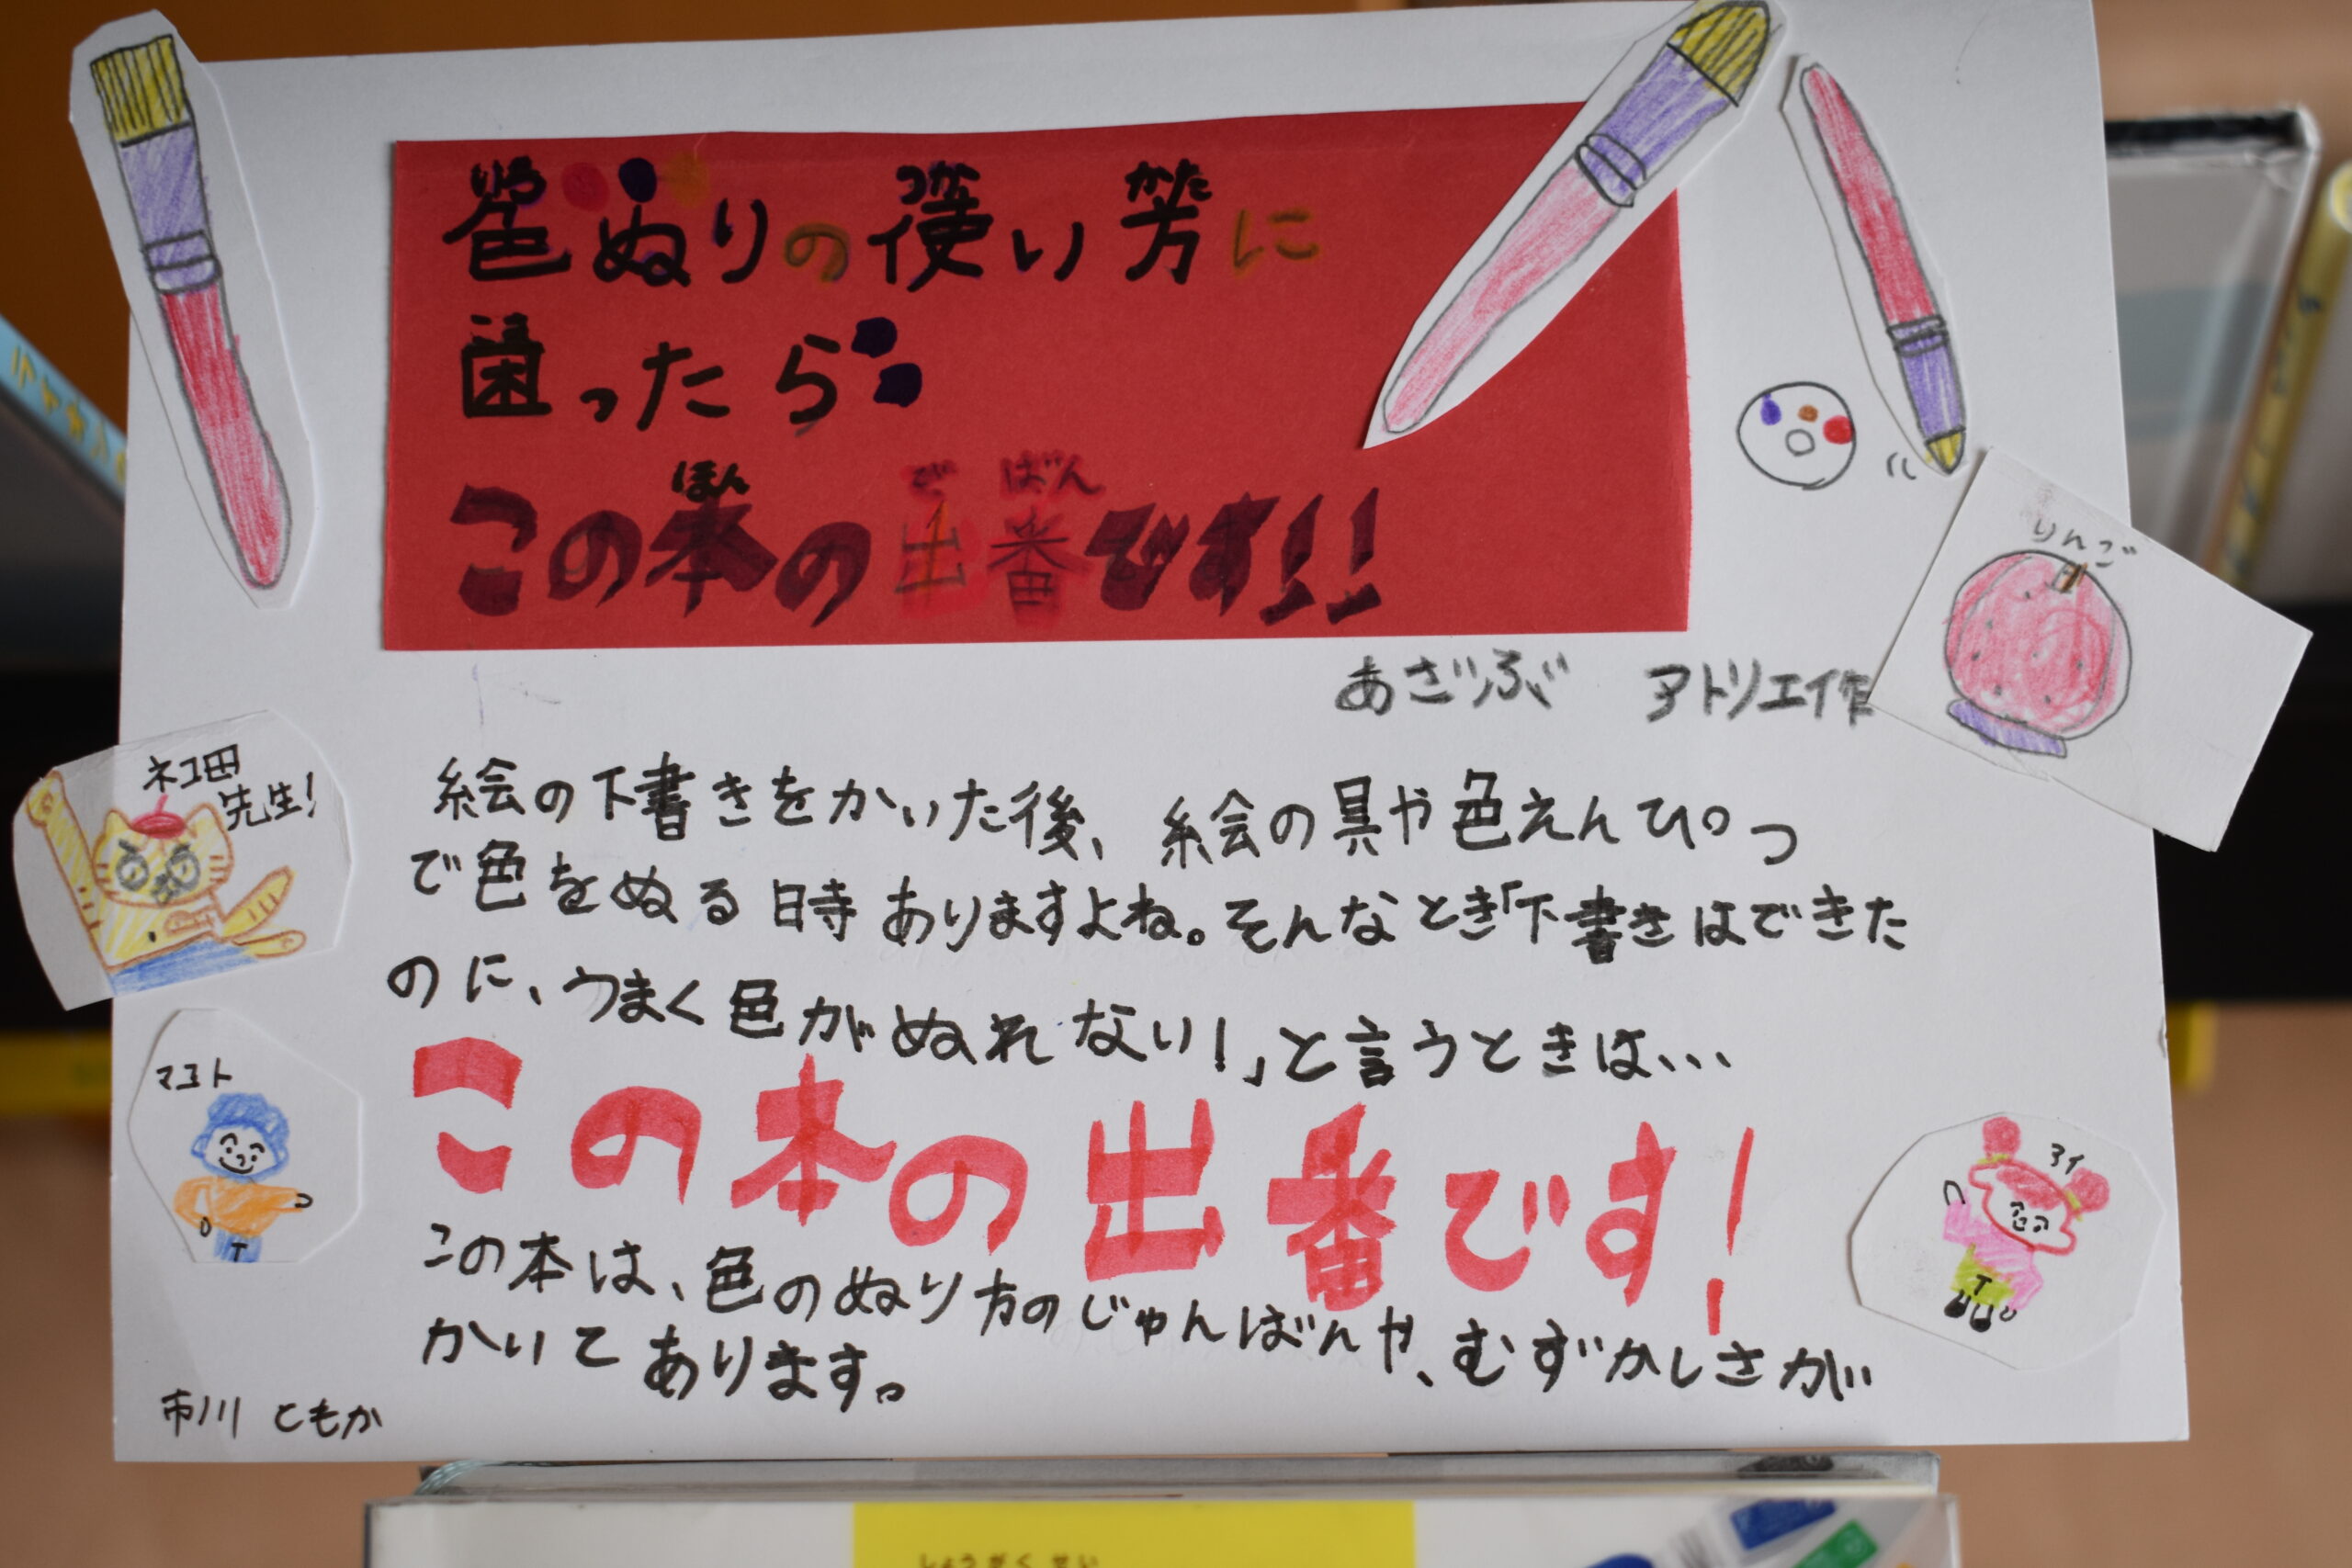 色ぬりの使い方に
いろ つか かた
困ったら
こま
この本の出番です!!
ほん で ばん
あざぶ アトリエ作
りんご
ネコ田
先生!
絵の下書きをかいた後、絵の具や色えんぴつ
で色をぬる時ありますよね。そんなとき「下書きはできた
のに、うまく色がぬれない!」と言うときは、、、
マコト
アイ
この本の出番です!
この本は、色のぬり方のじゅんばんや、むずかしさが
かいてあります。
市川 ともか
しょうがくせい